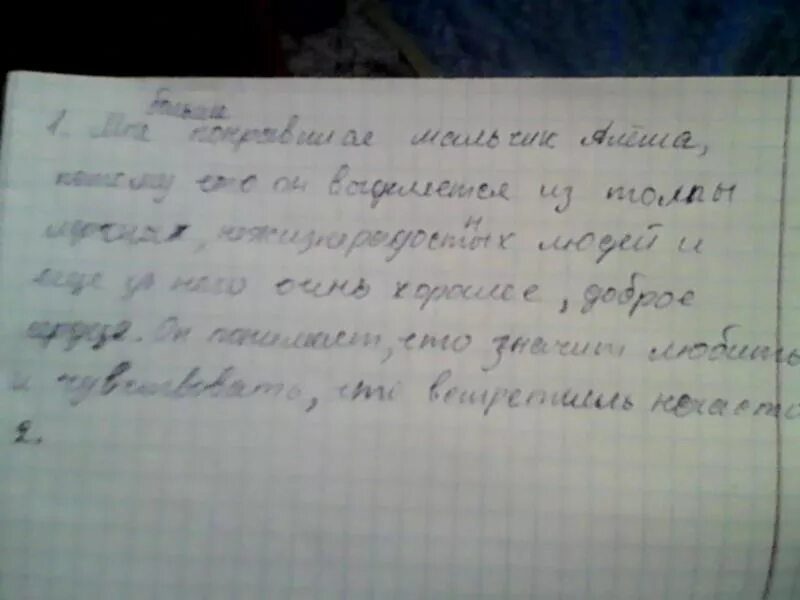 больше
1. Мне понравился мальчик Алёша,
потому что он выделяется из толпы
мрачных, нежизнерадостных людей и
еще у него очень хорошее, доброе
сердце. Он понимает, что значит любить
и чувствовать, что встретишь нечасто
2.